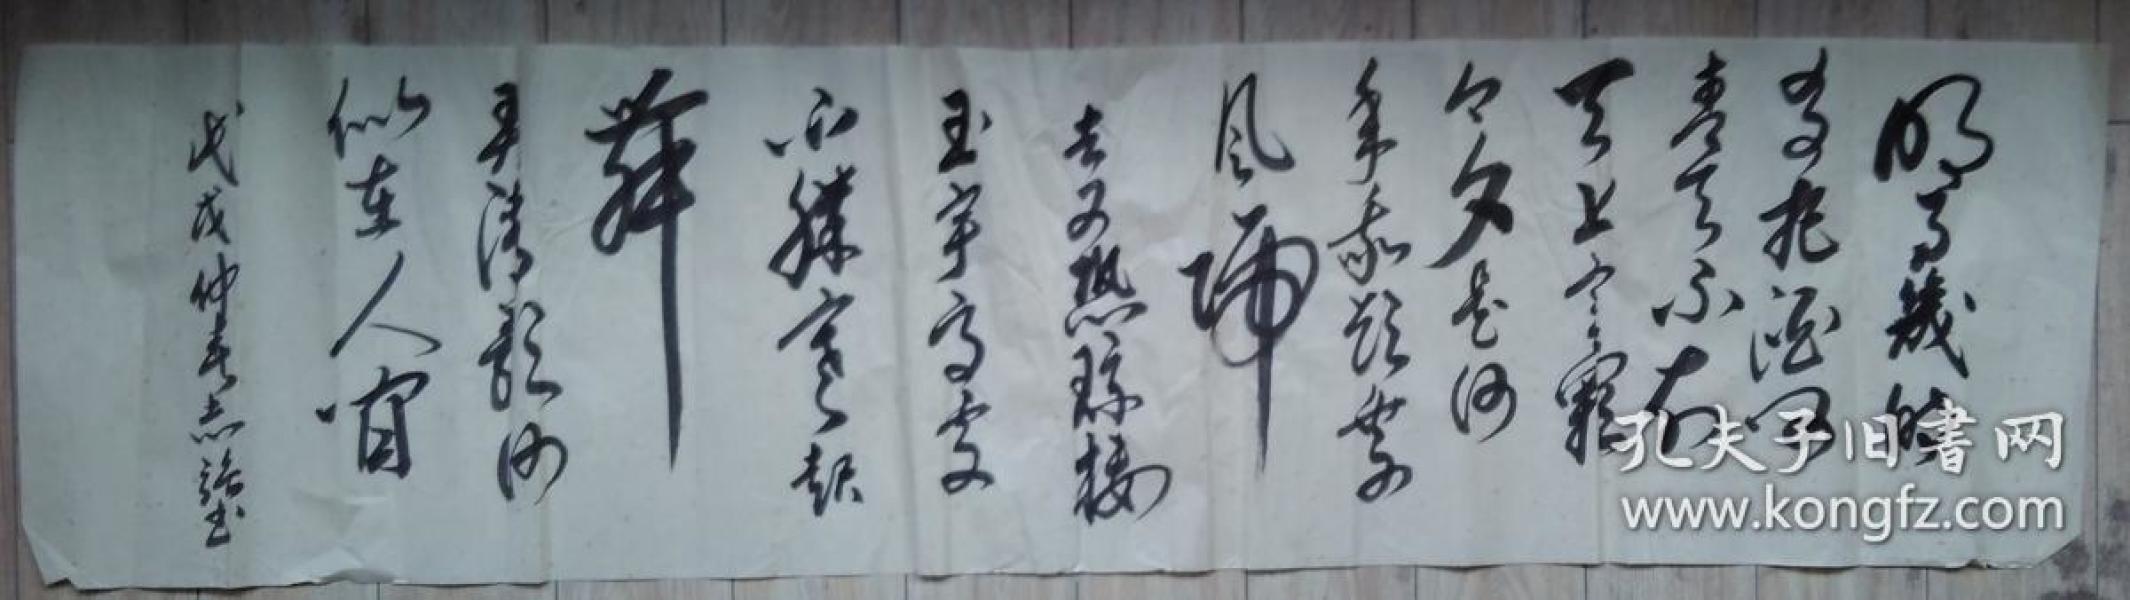 明月幾時
有把酒問
青天不知
天上宮闕
今夕是何
年我欲乘
風歸
去又恐瓊樓
玉宇高處
不勝寒起
舞
弄清影何
似在人間
戊戌仲春志書
孔夫子旧書网
www.kongfz.com